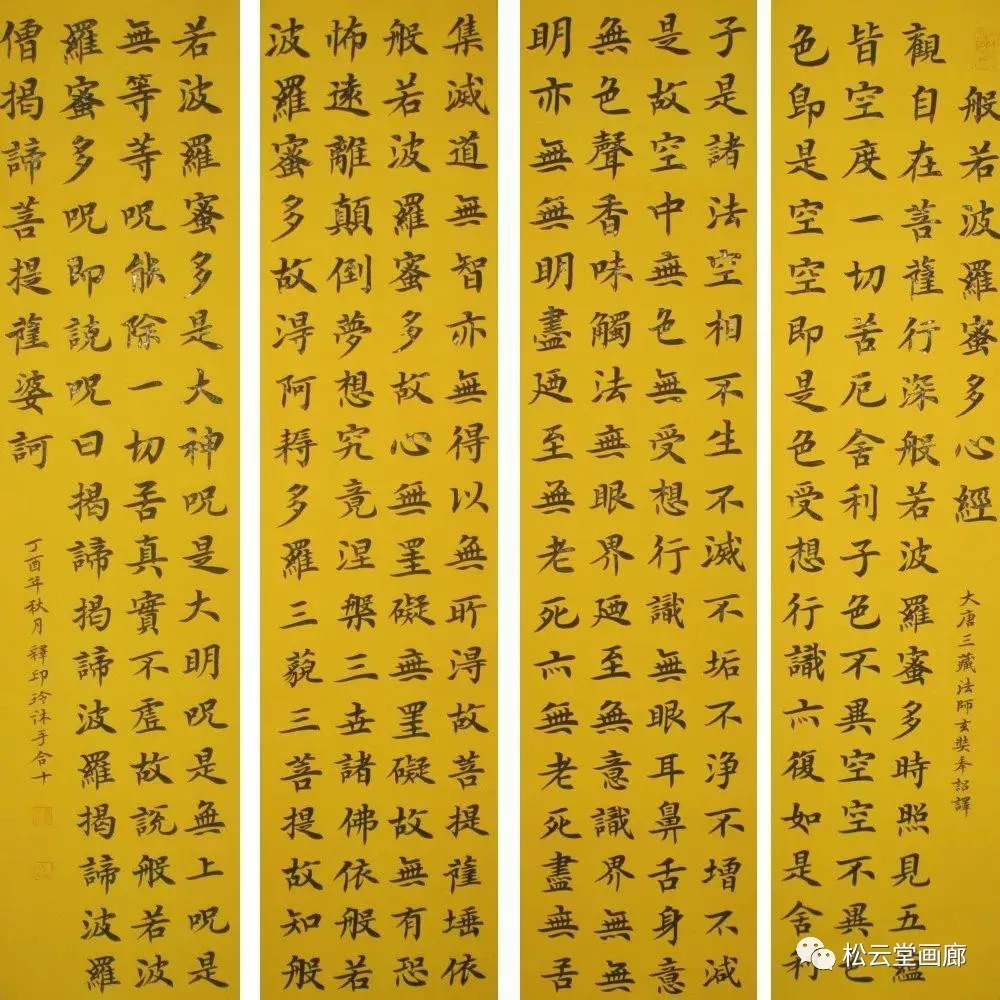 般若波羅蜜多心經
大唐三藏法師玄奘奉詔譯
觀自在菩薩行深般若波羅蜜多時照見五蘊
皆空度一切苦厄舍利子色不異空空不異色
色即是空空即是色受想行識亦復如是舍利
子是諸法空相不生不滅不垢不淨不增不減
是故空中無色無受想行識無眼耳鼻舌身意
無色聲香味觸法無眼界廼至無意識界無無
明亦無無明盡廼至無老死亦無老死盡無苦
集滅道無智亦無得以無所得故菩提薩埵依
般若波羅蜜多故心無罣礙無罣礙故無有恐
怖遠離顛倒夢想究竟涅槃三世諸佛依般若
波羅蜜多故得阿耨多羅三藐三菩提故知般
若波羅蜜多是大神呪是大明呪是無上呪是
無等等呪能除一切苦真實不虛故說般若波
羅蜜多呪即說呪曰揭諦揭諦波羅揭諦波羅
僧揭諦菩提薩婆訶
丁酉年秋月釋印玲沐手合十
松云堂画廊